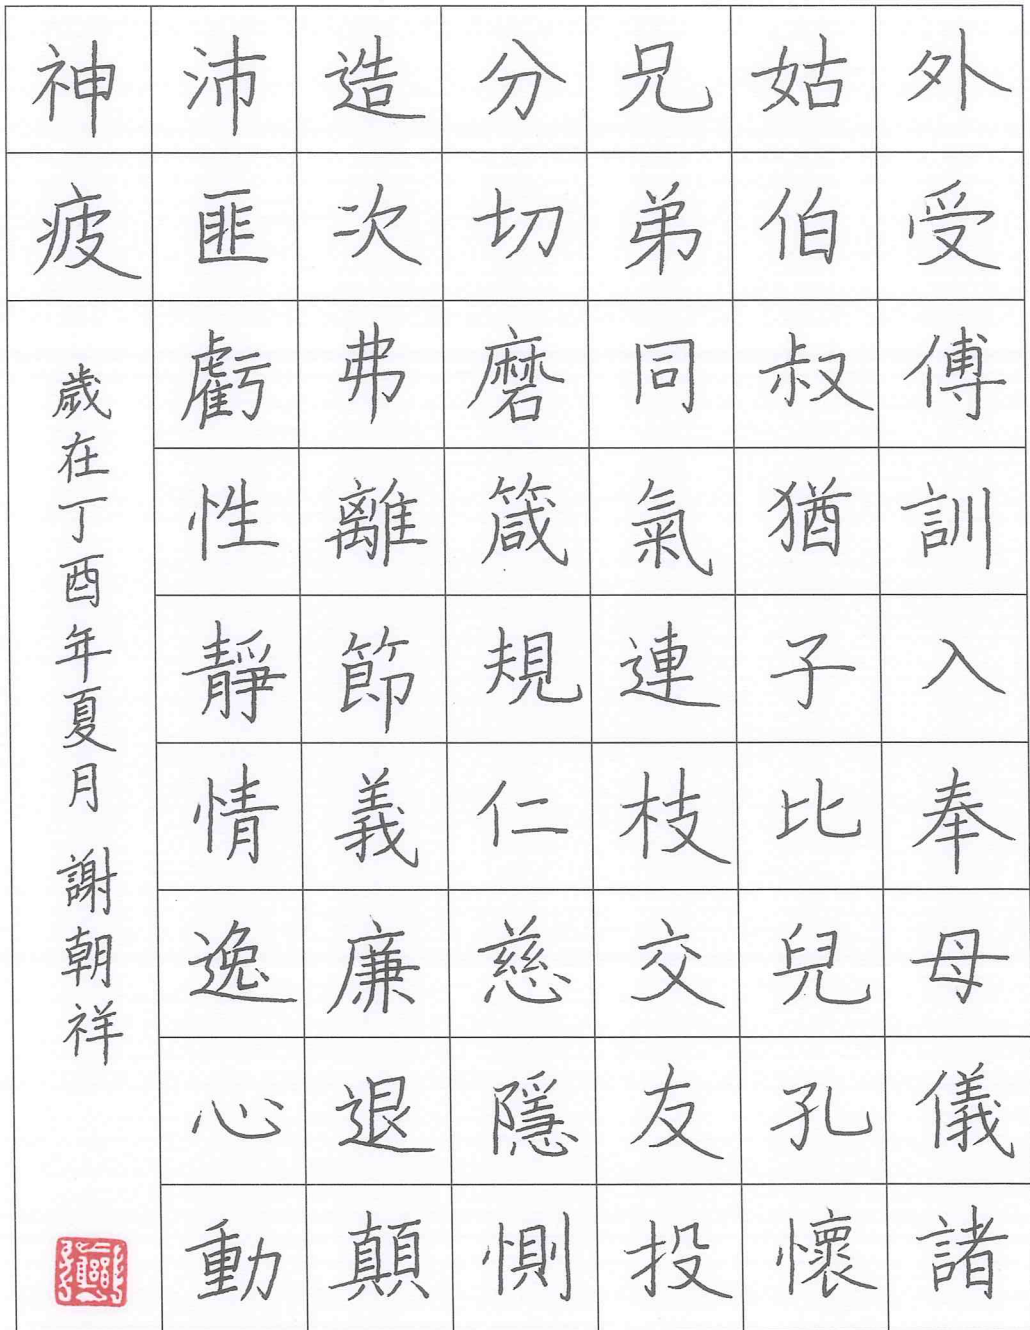 外受傅訓入奉母儀諸
姑伯叔猶子比兒孔懷
兄弟同氣連枝交友投
分切磨箴規仁慈隱惻
造次弗離節義廉退顛
沛匪虧性靜情逸心動
神疲
歲在丁酉年夏月 謝朝祥